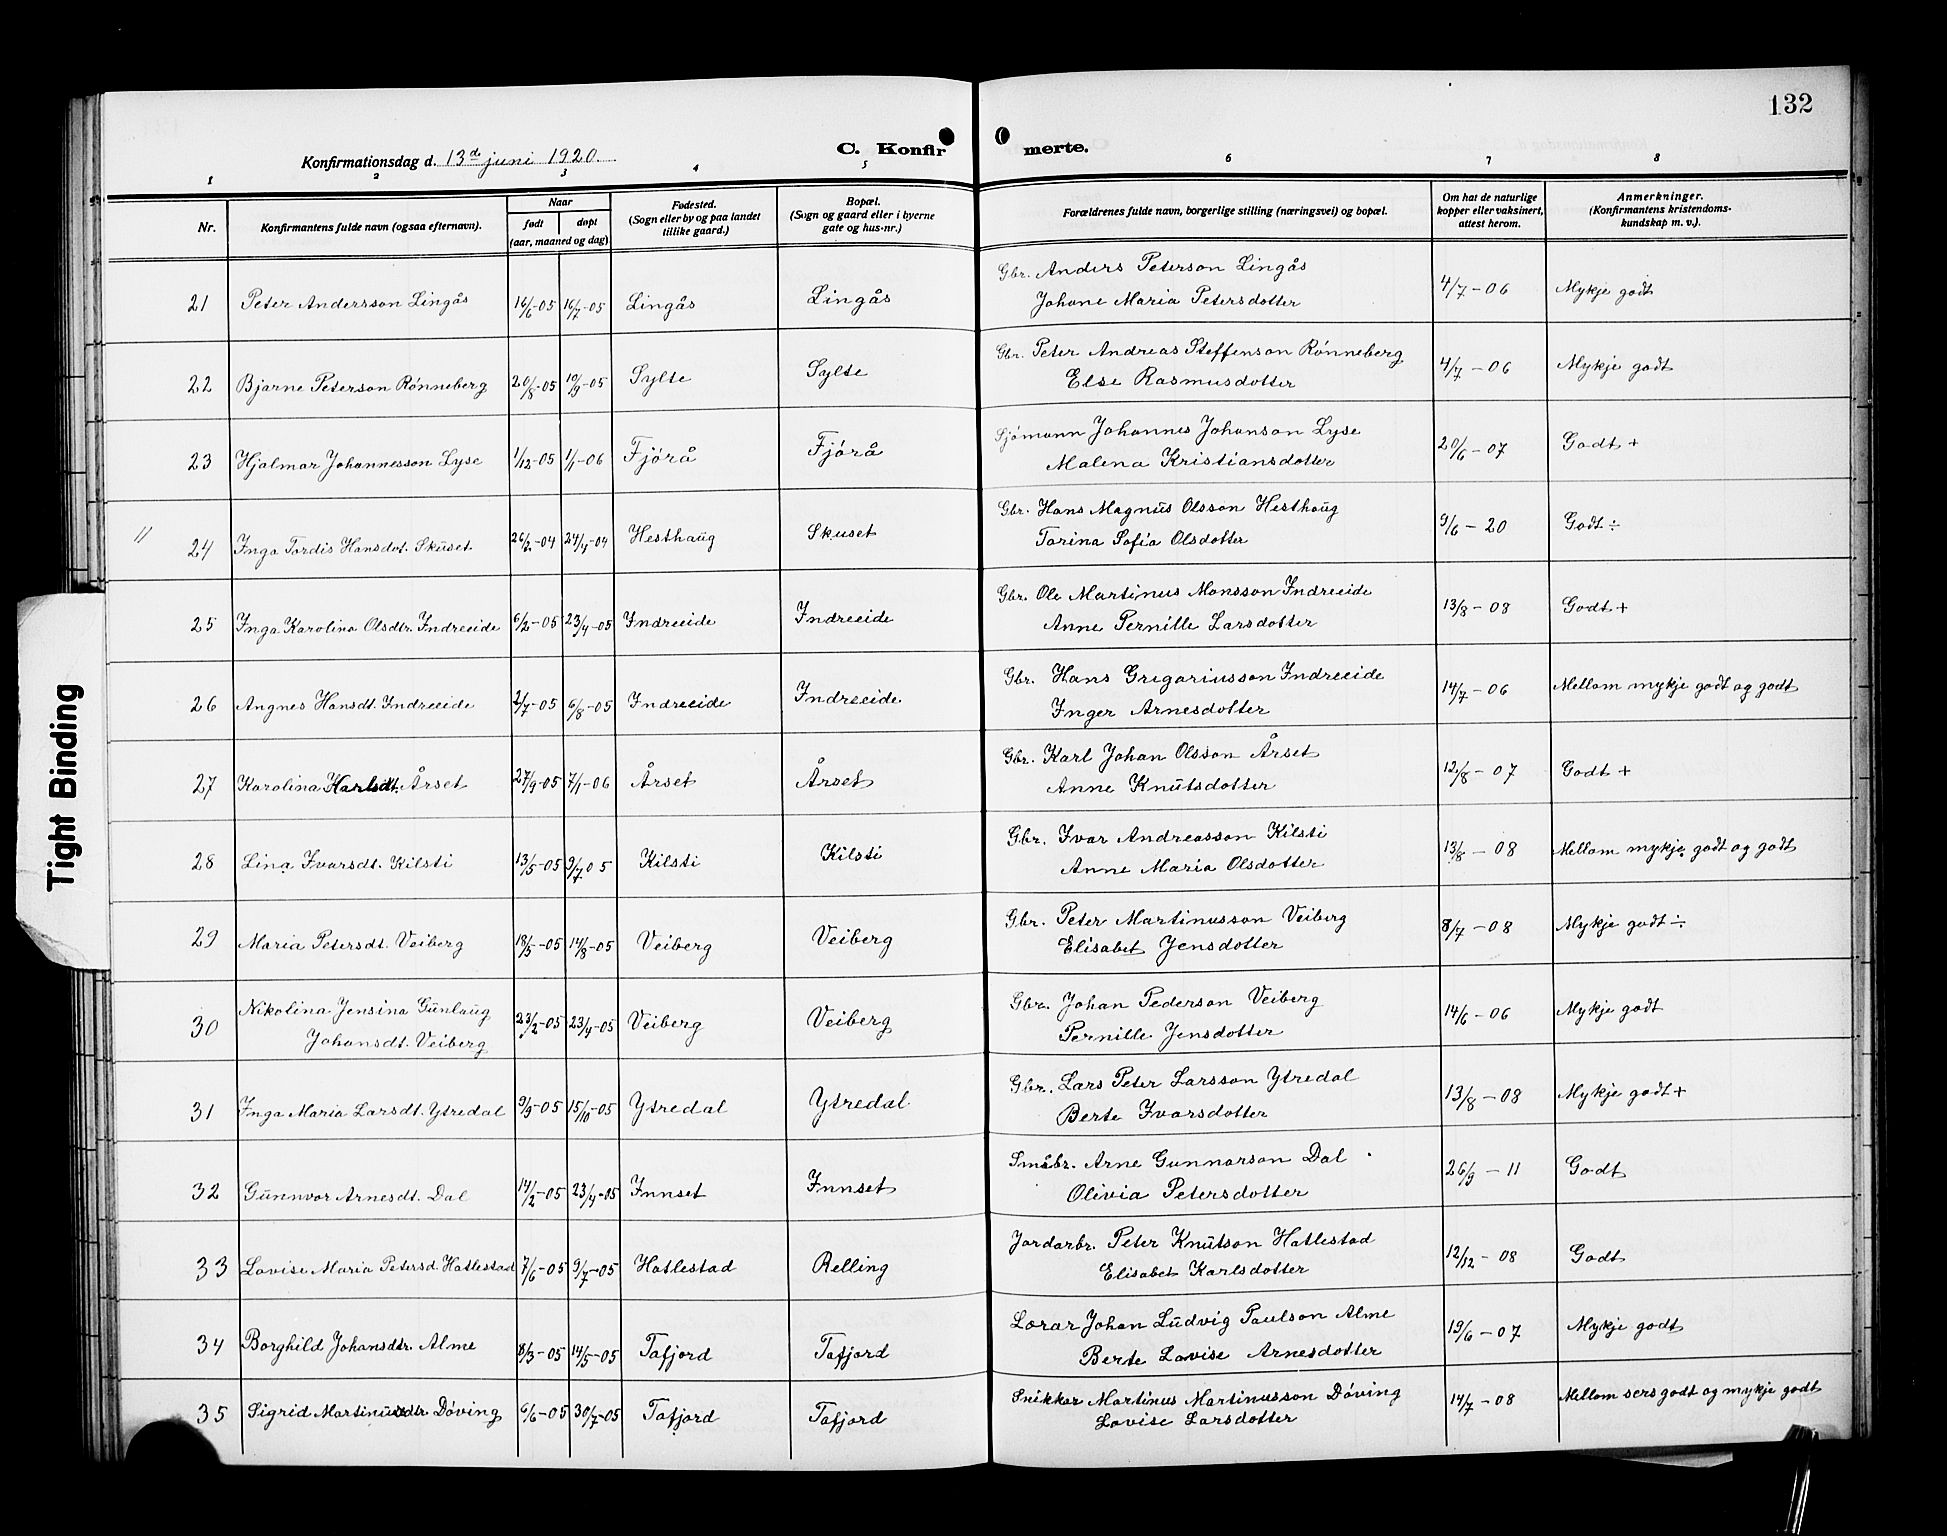 132
Konfirmationsdag d. 13de juni 1920.
C. Konfirmerte.
1 2 3 4 5 6 7 8
Nr.
Konfirmantens fulde navn (ogsaa efternavn).
Naar
født døpt
(aar, maaned og dag)
Fødested.
(Sogn eller by og paa landet
tillike gaard.)
Bopæl.
(Sogn og gaard eller i byerne
gate og hus-nr.)
Forældrenes fulde navn, borgerlige stilling (næringsvei) og bopæl.
Om hat de naturlige
kopper eller vaksinert,
attest herom.
Anmerkninger.
(Konfirmantens kristendoms-
kundskap m. v.).
21 Peter Andersson Lingås 16/6-05 16/7-05 Lingås Lingås Gbr. Anders Peterson Lingås 4/7-06 Mykje godt
Johane Maria Petersdotter
22 Bjarne Peterson Rønneberg 20/8-05 10/9-05 Sylte Sylte Gbr. Peter Andreas Steffenson Rønneberg 4/7-06 Mykje godt
Else Rasmusdotter
23 Hjalmar Johannesson Lyse 1/12-05 1/1-06 Fjörå Fjörå Sjömann Johannes Johanson Lyse 20/6-07 Godt +
Malena Kristiansdotter
24 Inga Tordis Hansdot. Skuset 26/2-04 24/4-04 Hesthaug Skuset Gbr. Hans Magnus Olsson Hesthaug 9/6-20 Godt ÷
Torina Sofia Olsdotter
25 Inga Karolina Olsdtr. Indreeide 6/2-05 23/4-05 Indreeide Indreeide Gbr. Ole Martinus Monsson Indreeide 13/8-08 Godt +
Anne Pernille Larsdotter
26 Angnes Hansdt. Indreeide 2/7-05 6/8-05 Indreeide Indreeide Gbr. Hans Gregoriusson Indreeide 14/7-06 Mellom mykje godt og godt
Inger Arnesdotter
27 Karolina Karlsdt. Årset 27/9-05 7/1-06 Årset Årset Gbr. Karl Johan Olsson Årset 12/8-07 Godt +
Anne Knutsdotter
28 Lina Ivarsdt. Kilsti 13/5-05 9/7 05 Kilsti Kilsti Gbr. Ivar Andreasson Kilsti 13/8-08 Mellom mykje godt og godt
Anne Maria Olsdotter
29 Maria Petersdt. Veiberg 18/5-05 14/8-05 Veiberg Veiberg Gbr. Peter Martinusson Veiberg 8/7-08 Mykje godt ÷
Elisabet Jensdotter
30 Nikolina Jensina Gunlaug
Johansdt. Veiberg 23/2-05 23/4-05 Veiberg Veiberg Gbr. Johan Pederson Veiberg 14/6-06 Mykje godt
Pernille Jensdotter
31 Inga Maria Larsdt. Ytredal 9/9-05 15/10-05 Ytredal Ytredal Gbr. Lars Peter Larsson Ytredal 13/8-08 Mykje godt +
Berte Ivarsdotter
32 Gunnvor Arnesdt. Dal 14/2-05 23/4-05 Innset Innset Småbr. Arne Gunnarson Dal 26/9-11 Godt
Olivia Petersdotter
33 Lovise Maria Petersd. Hatlestad 7/6-05 9/7-05 Hatlestad Relling Jordarbr. Peter Knutson Hatlestad 12/12-08 Godt
Elisabet Karlsdotter
34 Borghild Johansdtr. Alme 8/3-05 14/5-05 Tafjord Tafjord Lærar Johan Ludvig Paulson Alme 19/6-07 Mykje godt
Berte Lovise Arnesdotter
35 Sigrid Martinusdtr Döving 6/6-05 30/7-05 Tafjord Tafjord Snikkar Martinus Martinusson Döving 14/7-08 Mellom sers godt og mykje godt
Lovise Larsdotter
Tight Binding